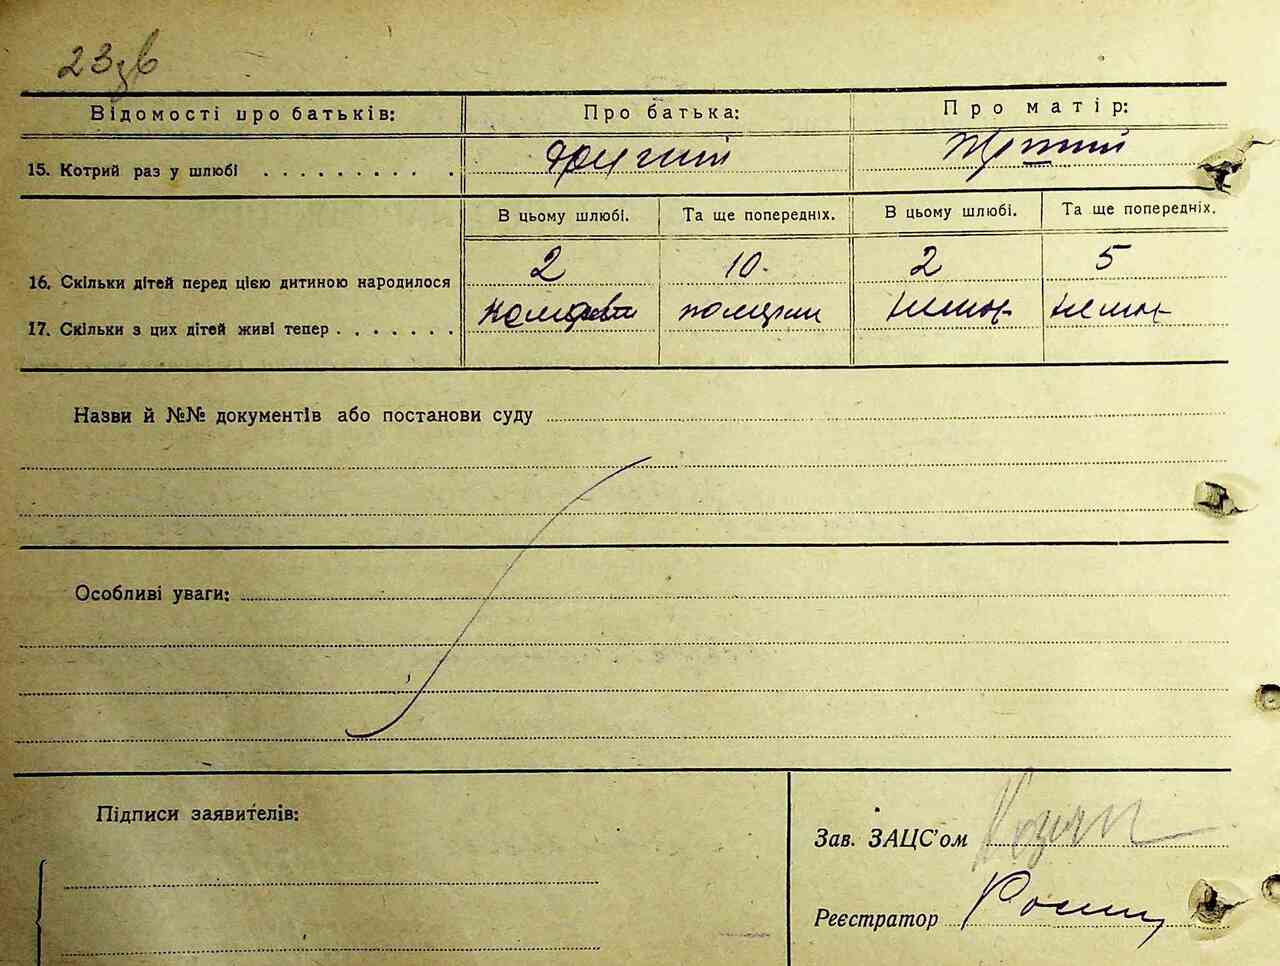 23зв
Відомості про батьків: Про батька: Про матір:
15. Котрий раз у шлюбі . . . . . . . . . . другий
В цьому шлюбі. Та ще попередніх. В цьому шлюбі. Та ще попередніх.
16. Скільки дітей перед цією дитиною народилося 2 10. 2 5
17. Скільки з цих дітей живі тепер . . . . . . . померли
Назви й №№ документів або постанови суду
Особливі уваги:
Підписи заявителів:
Зав. ЗАЦС'ом
Реєстратор